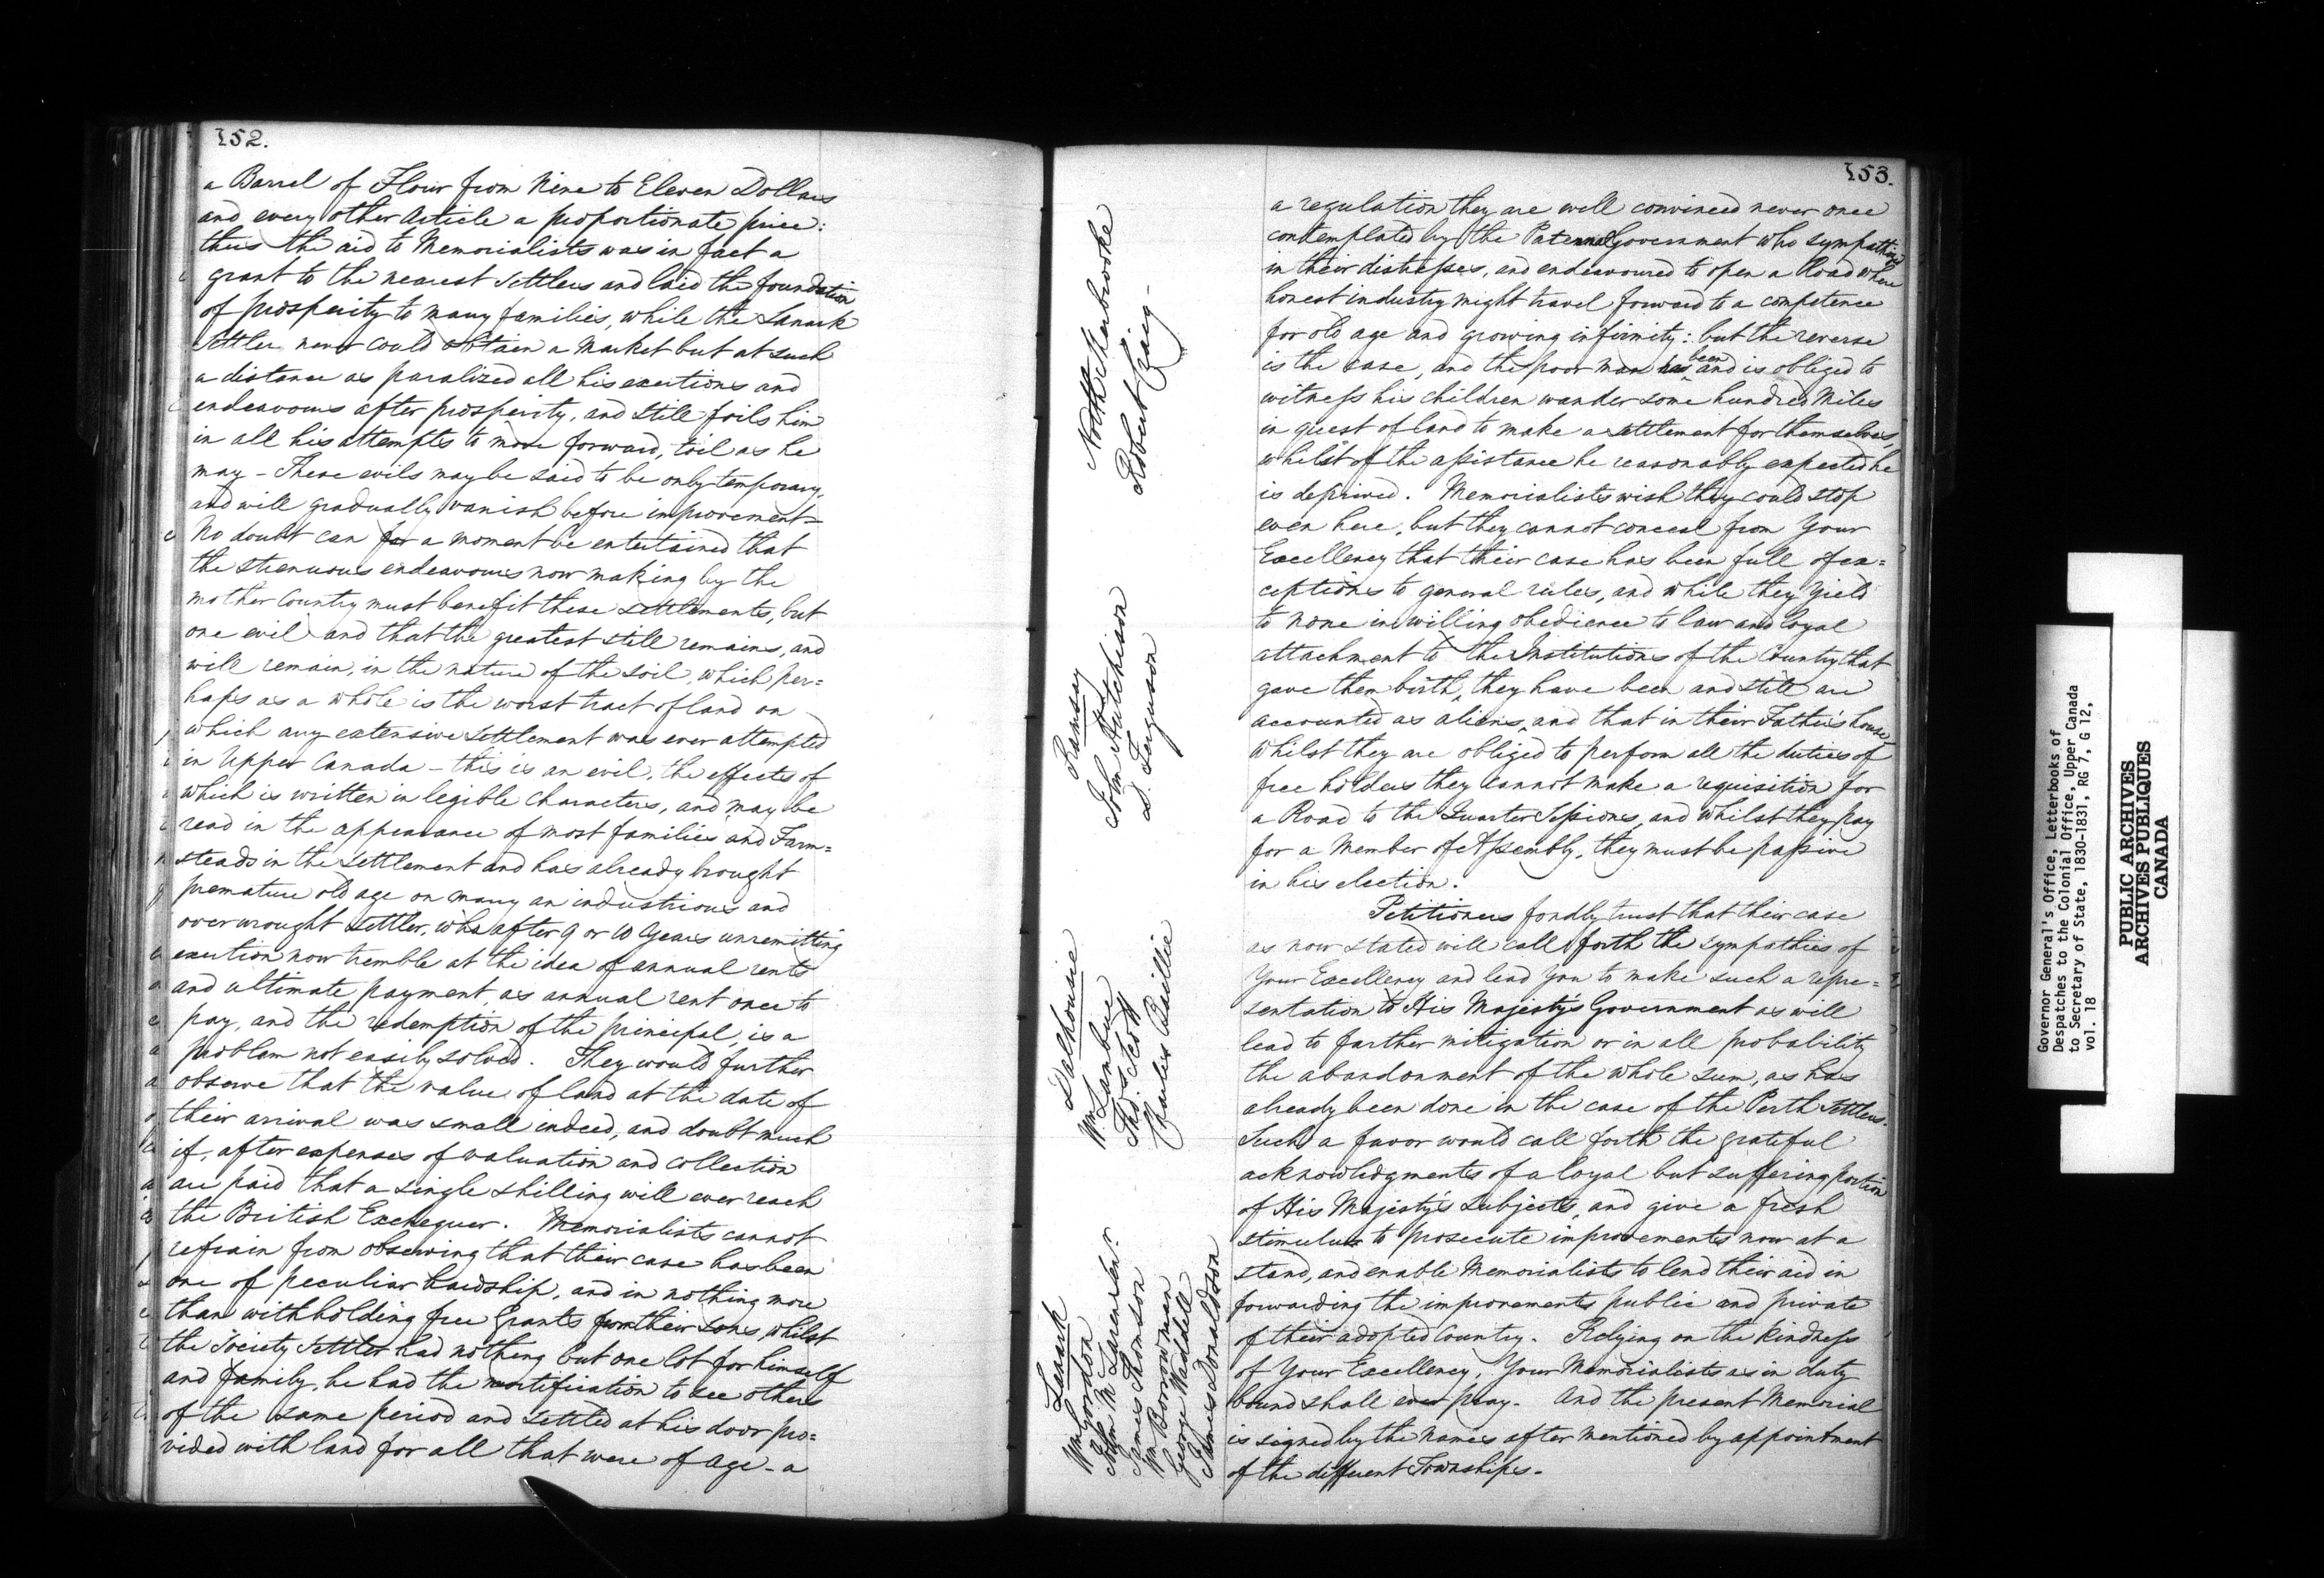 152.
a Barrel of Flour from Nine to Eleven Dollars
and every other Article a proportionate price:
thus the aid to Memorialists was in fact a
grant to the nearest Settlers and laid the foundation
of prosperity to many families, while the Lanark
Settler never could obtain a Market but at such
a distance as paralized all his exertions and
endeavours after prosperity, and still foils him
in all his attempts to move forward, toil as he
may - These evils may be said to be only temporary,
and will gradually vanish before improvement -
No doubt can for a moment be entertained that
the strenuous endeavours now making by the
mother Country must benefit these settlements, but
one evil and that the greatest still remains, and
will remain, in the nature of the soil, which per=
haps as a whole is the worst tract of land on
which any extensive settlement was ever attempted
in Upper Canada - this is an evil, the effects of
which is written in legible Characters, and may be
read in the appearance of most families and Farm=
steads in the Settlement and has already brought
premature old age on many an industrious and
overwrought Settler, who after 9 or 10 Years unremitting
exertion now tremble at the idea of annual rents
and ultimate payment, as annual rent once to
pay, and the redemption of the principal, is a
problem not easily solved. They would further
observe that the value of land at the date of
their arrival was small indeed, and doubt much
if, after expenses of valuation and collection
are paid that a single shilling will ever reach
the British Exchequer. Memorialists cannot
refrain from observing that their case has been
one of peculiar hardship, and in nothing more
than withholding free Grants from their sons, whilst
the Society Settler had nothing but one lot for himself
and family, he had the mortification to see others
of the same period and settled at his door pro=
vided with land for all that were of age - a
153.
a regulation they are well convinced never once
contemplated by the Paternal Government who sympathized
in their distresses, and endeavoured to open a Road where
honest industry might travel forward to a competence
for old age and growing infirmity: but the reverse
is the case, and the poor man has been and is obliged to
witness his children wander some hundred Miles
in quest of land to make a settlement for themselves,
whilst of the assistance he reasonably expected he
is deprived. Memorialists wish they could stop
even here, but they cannot conceal from Your
Excellency that their case has been full of ex=
ceptions to general rules, and while they yield
to none in willing obedience to law and loyal
attachment to the Institutions of the Country that
gave them birth, they have been and still are
accounted as aliens, and that in their Father's house
Whilst they are obliged to perform all the duties of
free holders they cannot make a requisition for
a Road to the Quarter Sessions, and whilst they pay
for a Member of Assembly, they must be passive
in his election.
Petitioners fondly trust that their case
as now stated will call forth the sympathies of
Your Excellency and lead you to make such a repre=
sentation to His Majesty's Government as will
lead to farther mitigation or in all probability
the abandonment of the whole sum, as has
already been done in the case of the Perth Settlers.
Such a favor would call forth the grateful
acknowledgments of a loyal but suffering portion
of His Majesty's Subjects, and give a fresh
stimulus to prosecute improvements now at a
stand, and enable Memorialists to lend their aid in
forwarding the improvements public and private
of their adopted Country. Relying on the kindness
of Your Excellency, Your Memorialists as in duty
bound shall ever pray. And the present Memorial
is signed by the names after mentioned by appointment
of the different Townships.
Lanark
Wm Gordon
John McLaren Senr.
James Thomson
Wm Borrowman
George Waddell
James Donaldson
Dalhousie
Thos. Scott
Charles Baillie
Ramsay
John Hutchison
D. Ferguson
North Sherbrooke
Robert Craig -
Governor General's Office, Letterbooks of
Despatches to the Colonial Office, Upper Canada
to Secretary of State, 1830-1831, RG 7, G 12,
vol. 18
PUBLIC ARCHIVES
ARCHIVES PUBLIQUES
CANADA